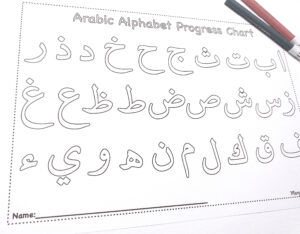 Arabic Alphabet Progress Chart
ا ب ت ث ج ح خ د ذ ر
ز س ش ص ض ط ظ ع غ
ف ق ك ل م ن ه و ي ء
Name: